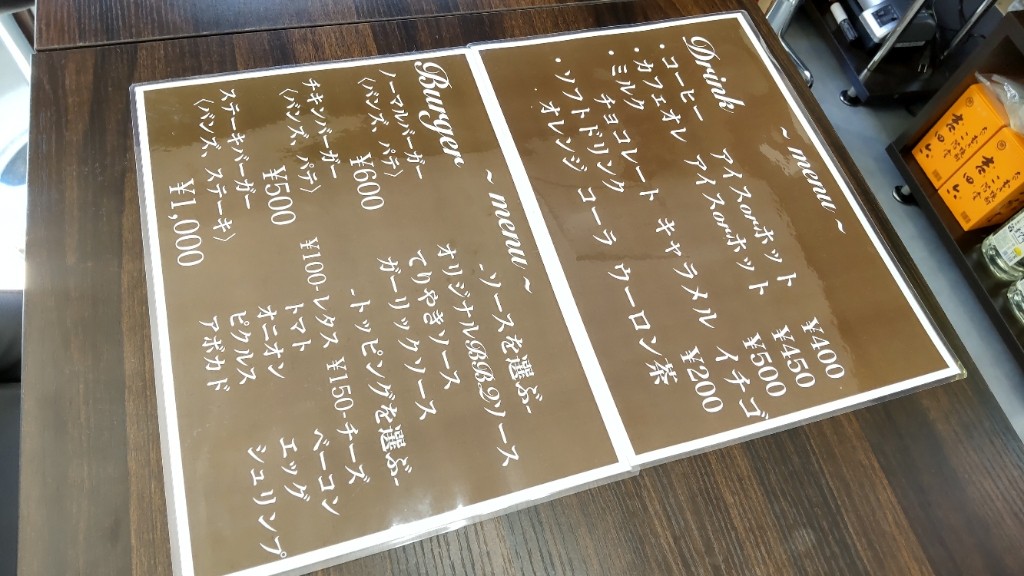 ~ menu ~
Drink
・コーヒー アイスorホット ¥400
・カフェオレ アイスorホット ¥450
・ミルク ¥500
チョコレート キャラメル イチゴ
・ソフトドリンク ¥200
オレンジ コーラ ウーロン茶
~ menu ~
Burger
ノーマルバーガー
〈バンズ、パテ〉 ¥600
チキンバーガー
〈バンズ、パテ〉 ¥500
ステーキバーガー
〈バンズ、ステーキ〉
¥1,000
-ソースを選ぶ-
オリジナルBBQソース
てりやきソース
ガーリックソース
-トッピングを選ぶ-
¥100-レタス ¥150-チーズ
トマト ベーコン
オニオン エッグ
ピクルス シュリンプ
アボカド